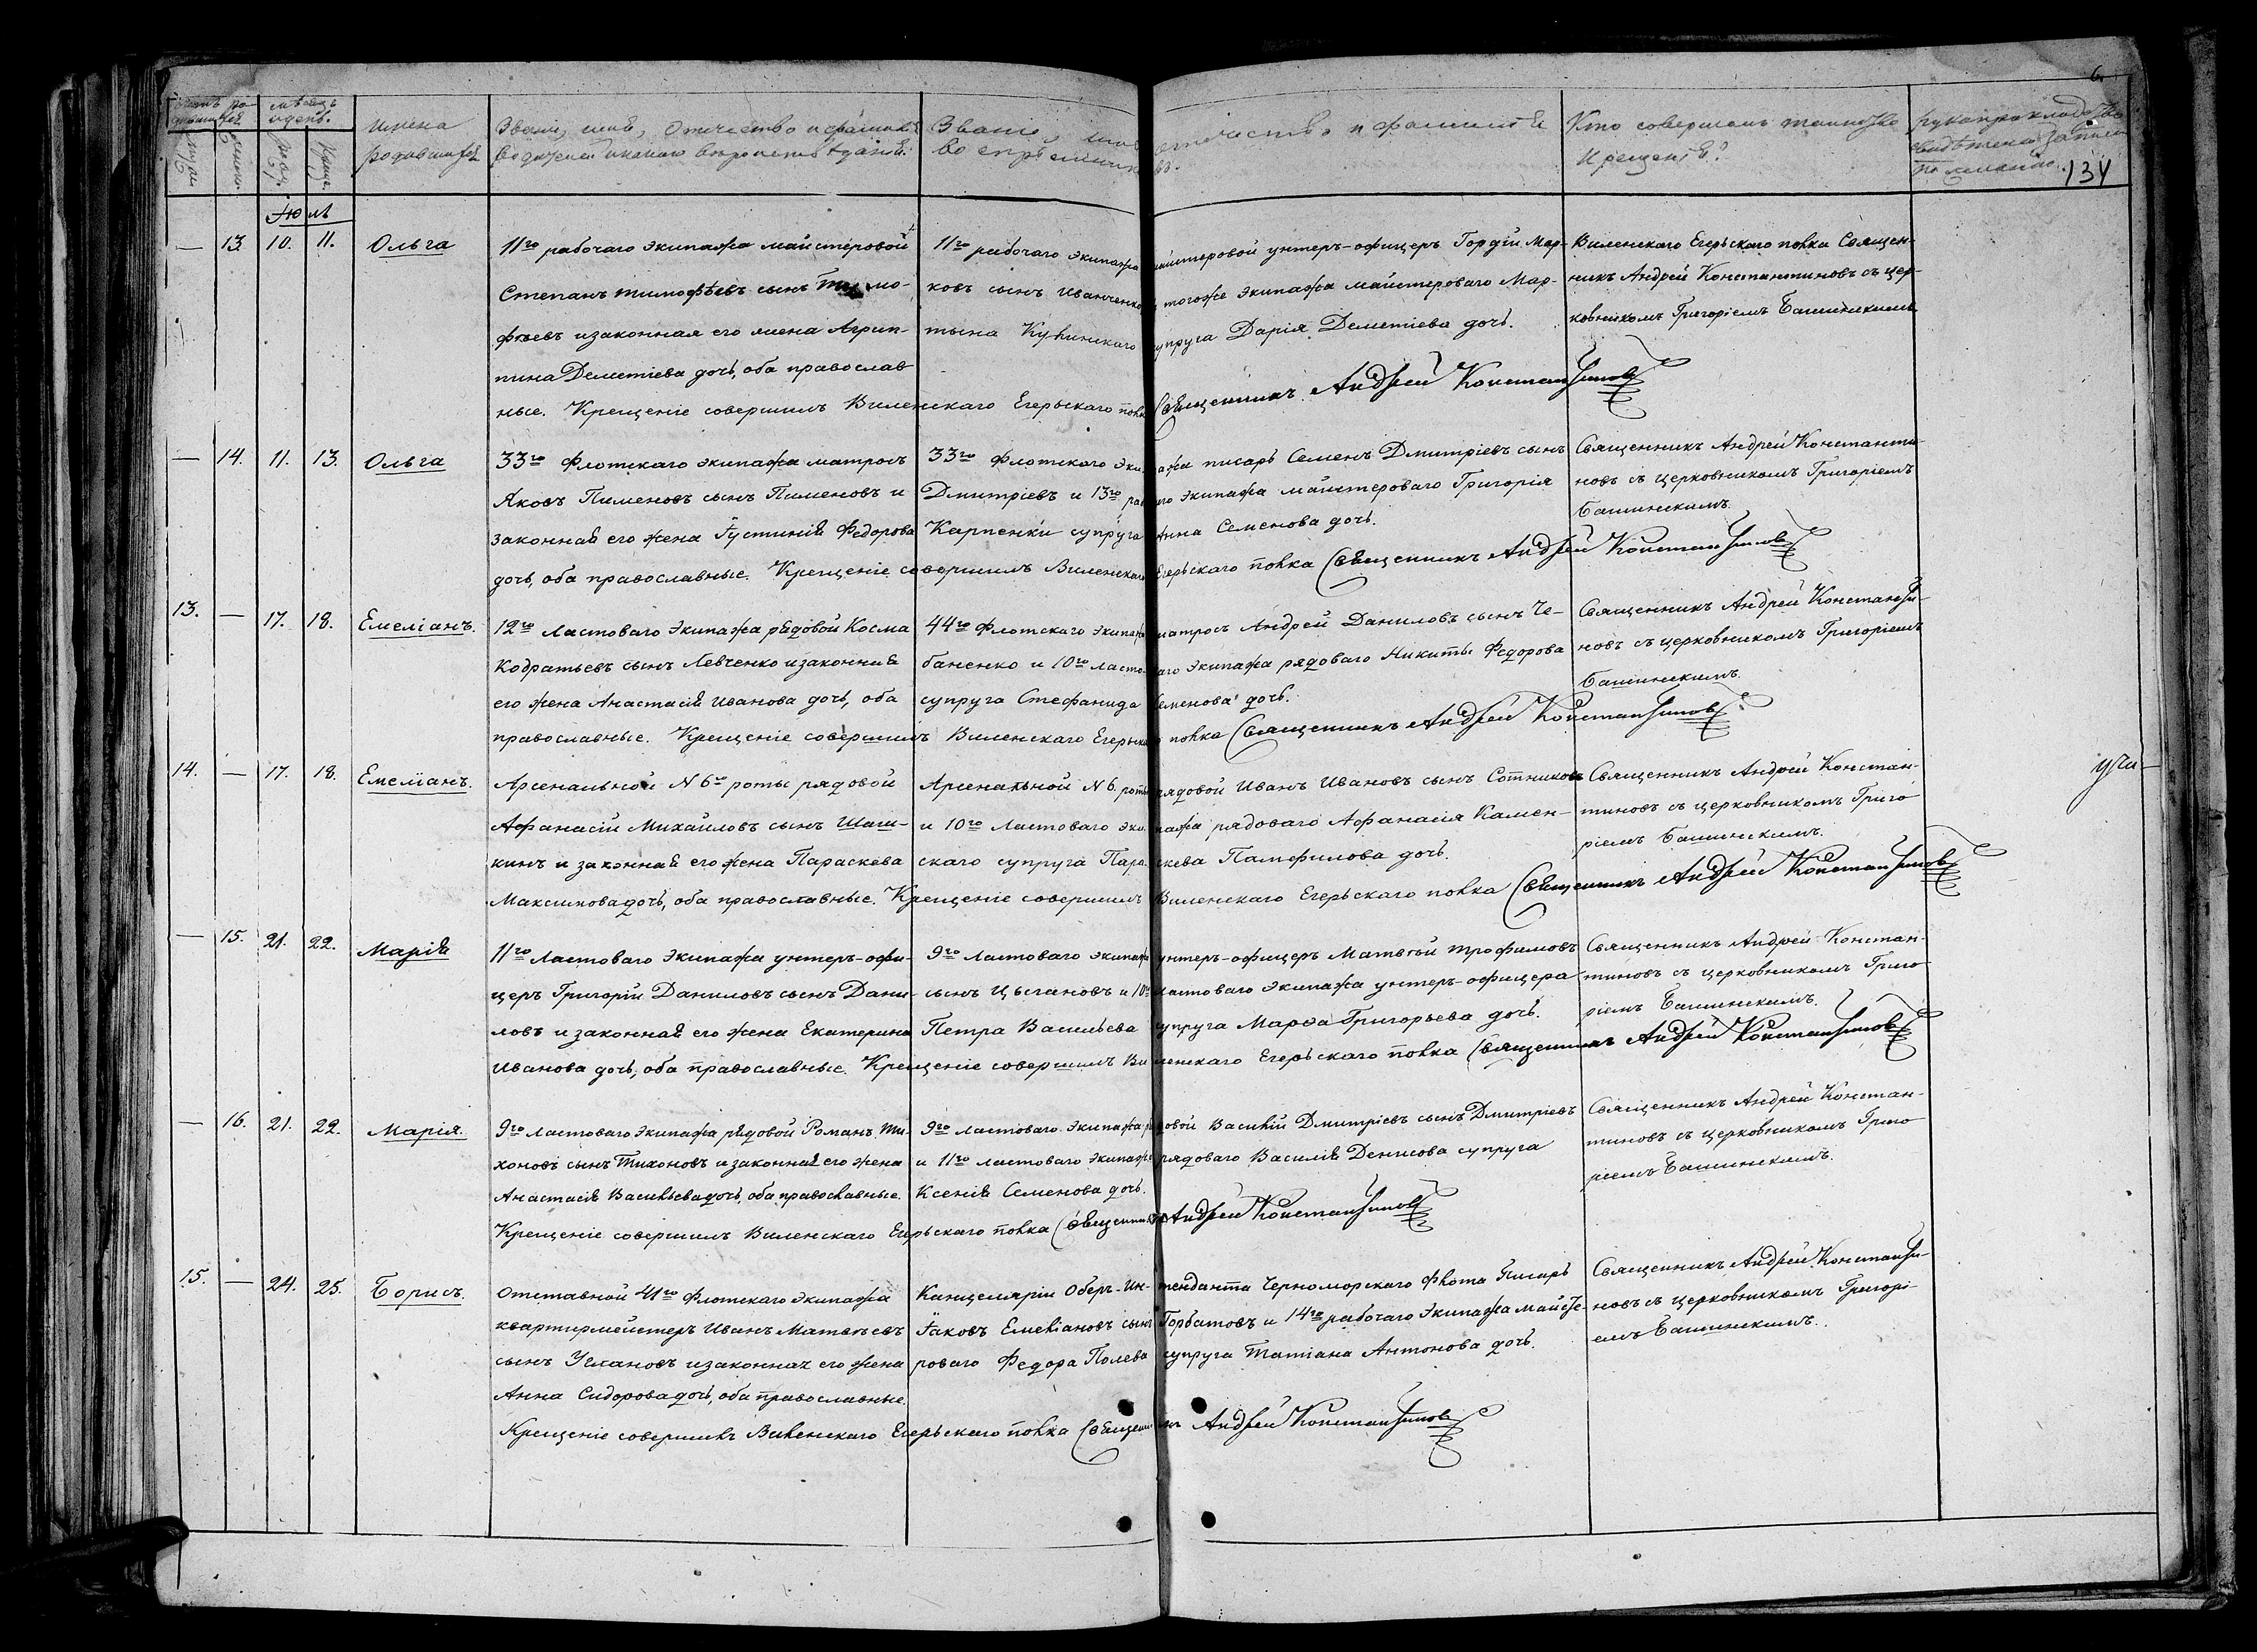 6.
134
мѣсяцъ
и день.
Имена
родившихся
Званіе, имя, отечество и фамилія
Званіе, имя отечество и фамилія
воспріемниковъ.
Кто совершалъ таинство
Крещенія?
рукоприкладство
по желанію.
Іюль
— 13. 10. 11. Ольга
11го рабочаго экипажа майстеровой
Степанъ Тимофѣевъ сынъ Тимо-
фѣевъ и законная его жена Агрип-
пина Деметіева дочь, оба православ
ные. Крещеніе совершилъ Виленскаго Егерьскаго полка Священникъ Андрей Константиновъ
11го рабочаго экипажа майстеровой унтеръ-офицеръ Гордѣй Мар-
ковъ сынъ Иванченко и тогоже экипажа майстероваго Мар-
тына Кулинскаго супруга Дарія Деметіева дочь.
Виленскаго Егерьскаго полка Священ-
никъ Андрей Константиновъ съ цер-
ковникомъ Григоріемъ Башинскимъ
— 14. 11. 13. Ольга
33го Флотскаго экипажа матросъ
Яковъ Пименовъ сынъ Пименовъ и
законная его жена Іустинія Федорова
дочь, оба православные. Крещеніе совершилъ Виленскаго Егерьскаго полка Священникъ Андрей Константиновъ
33го Флотскаго экипажа писарь Семенъ Дмитріевъ сынъ
Дмитріевъ и 13го рабочаго экипажа майстероваго Григорія
Карпенки супруга Анна Семенова дочь.
Священникъ Андрей Константи-
новъ съ церковникомъ Григоріемъ
Башинскимъ.
13. — 17. 18. Емеліанъ.
12го Ластоваго экипажа рядовой Косма
Кодратьевъ сынъ Левченко и законная
его жена Анастасія Иванова дочь, оба
православные. Крещеніе совершилъ Виленскаго Егерьскаго полка Священникъ Андрей Константиновъ
44го Флотскаго экипажа матросъ Андрей Даниловъ сынъ Че-
баненко и 10го ластоваго экипажа рядоваго Никиты Федорова
супруга Стефанида Семенова дочь.
Священникъ Андрей Константи-
новъ съ церковникомъ Григоріемъ
Башинскимъ.
14. — 17. 18. Емеліанъ.
Арсенальной N 6й роты рядовой
Афанасій Михайловъ сынъ Шаш-
кинъ и законная его жена Параскева
Максимова дочь, оба православные. Крещеніе совершилъ Виленскаго Егерьскаго полка Священникъ Андрей Константиновъ
Арсенальной N 6. роты рядовой Иванъ Ивановъ сынъ Сотниковъ
и 10го Ластоваго экипажа рядоваго Афанасія Камен-
скаго супруга Параскева Памфилова дочь.
Священникъ Андрей Констан-
тиновъ съ церковникомъ Григо
ріемъ Башинскимъ.
— 15. 21. 22. Марія
11го Ластоваго экипажа унтеръ-офи-
церъ Григорій Даниловъ сынъ Дани-
ловъ и законная его жена Екатерина
Иванова дочь, оба православные. Крещеніе совершилъ Виленскаго Егерьскаго полка Священникъ Андрей Константиновъ
9го Ластоваго экипажа унтеръ-офицеръ Матвѣй Трофимовъ
сынъ Цыгановъ и 10го Ластоваго экипажа унтеръ-офицера
Петра Васильева супруга Марѳа Григорьева дочь.
Священникъ Андрей Констан-
тиновъ съ церковникомъ Григо
ріемъ Башинскимъ.
— 16. 21. 22. Марія.
9го Ластоваго экипажа рядовой Романъ Ти-
хоновъ сынъ Тихоновъ и законная его жена
Анастасія Васильева дочь, оба православные.
Крещеніе совершилъ Виленскаго Егерьскаго полка Священникъ Андрей Константиновъ
9го Ластоваго экипажа рядовой Василій Дмитріевъ сынъ Дмитріевъ
и 11го ластоваго экипажа рядоваго Василія Денисова супруга
Ксенія Семенова дочь.
Священникъ Андрей Констан-
тиновъ съ церковникомъ Григо
ріемъ Башинскимъ.
15. — 24. 25. Борисъ.
Отставной 41го Флотскаго экипажа
квартирмейстеръ Иванъ Матвѣевъ
сынъ Улановъ и законная его жена
Анна Сидорова дочь, оба православные.
Крещеніе совершилъ Виленскаго Егерьскаго полка Священникъ Андрей Константиновъ
Канцеляріи Оберъ-Ин-тенданта Черноморскаго флота Писарь
Іаковъ Емеліановъ сынъ Горбатовъ и 14го рабочаго экипажа майсте-
роваго Федора Полева супруга Татіана Антонова дочь.
Священникъ Андрей Константи-
новъ съ церковникомъ Григорі-
емъ Башинскимъ.